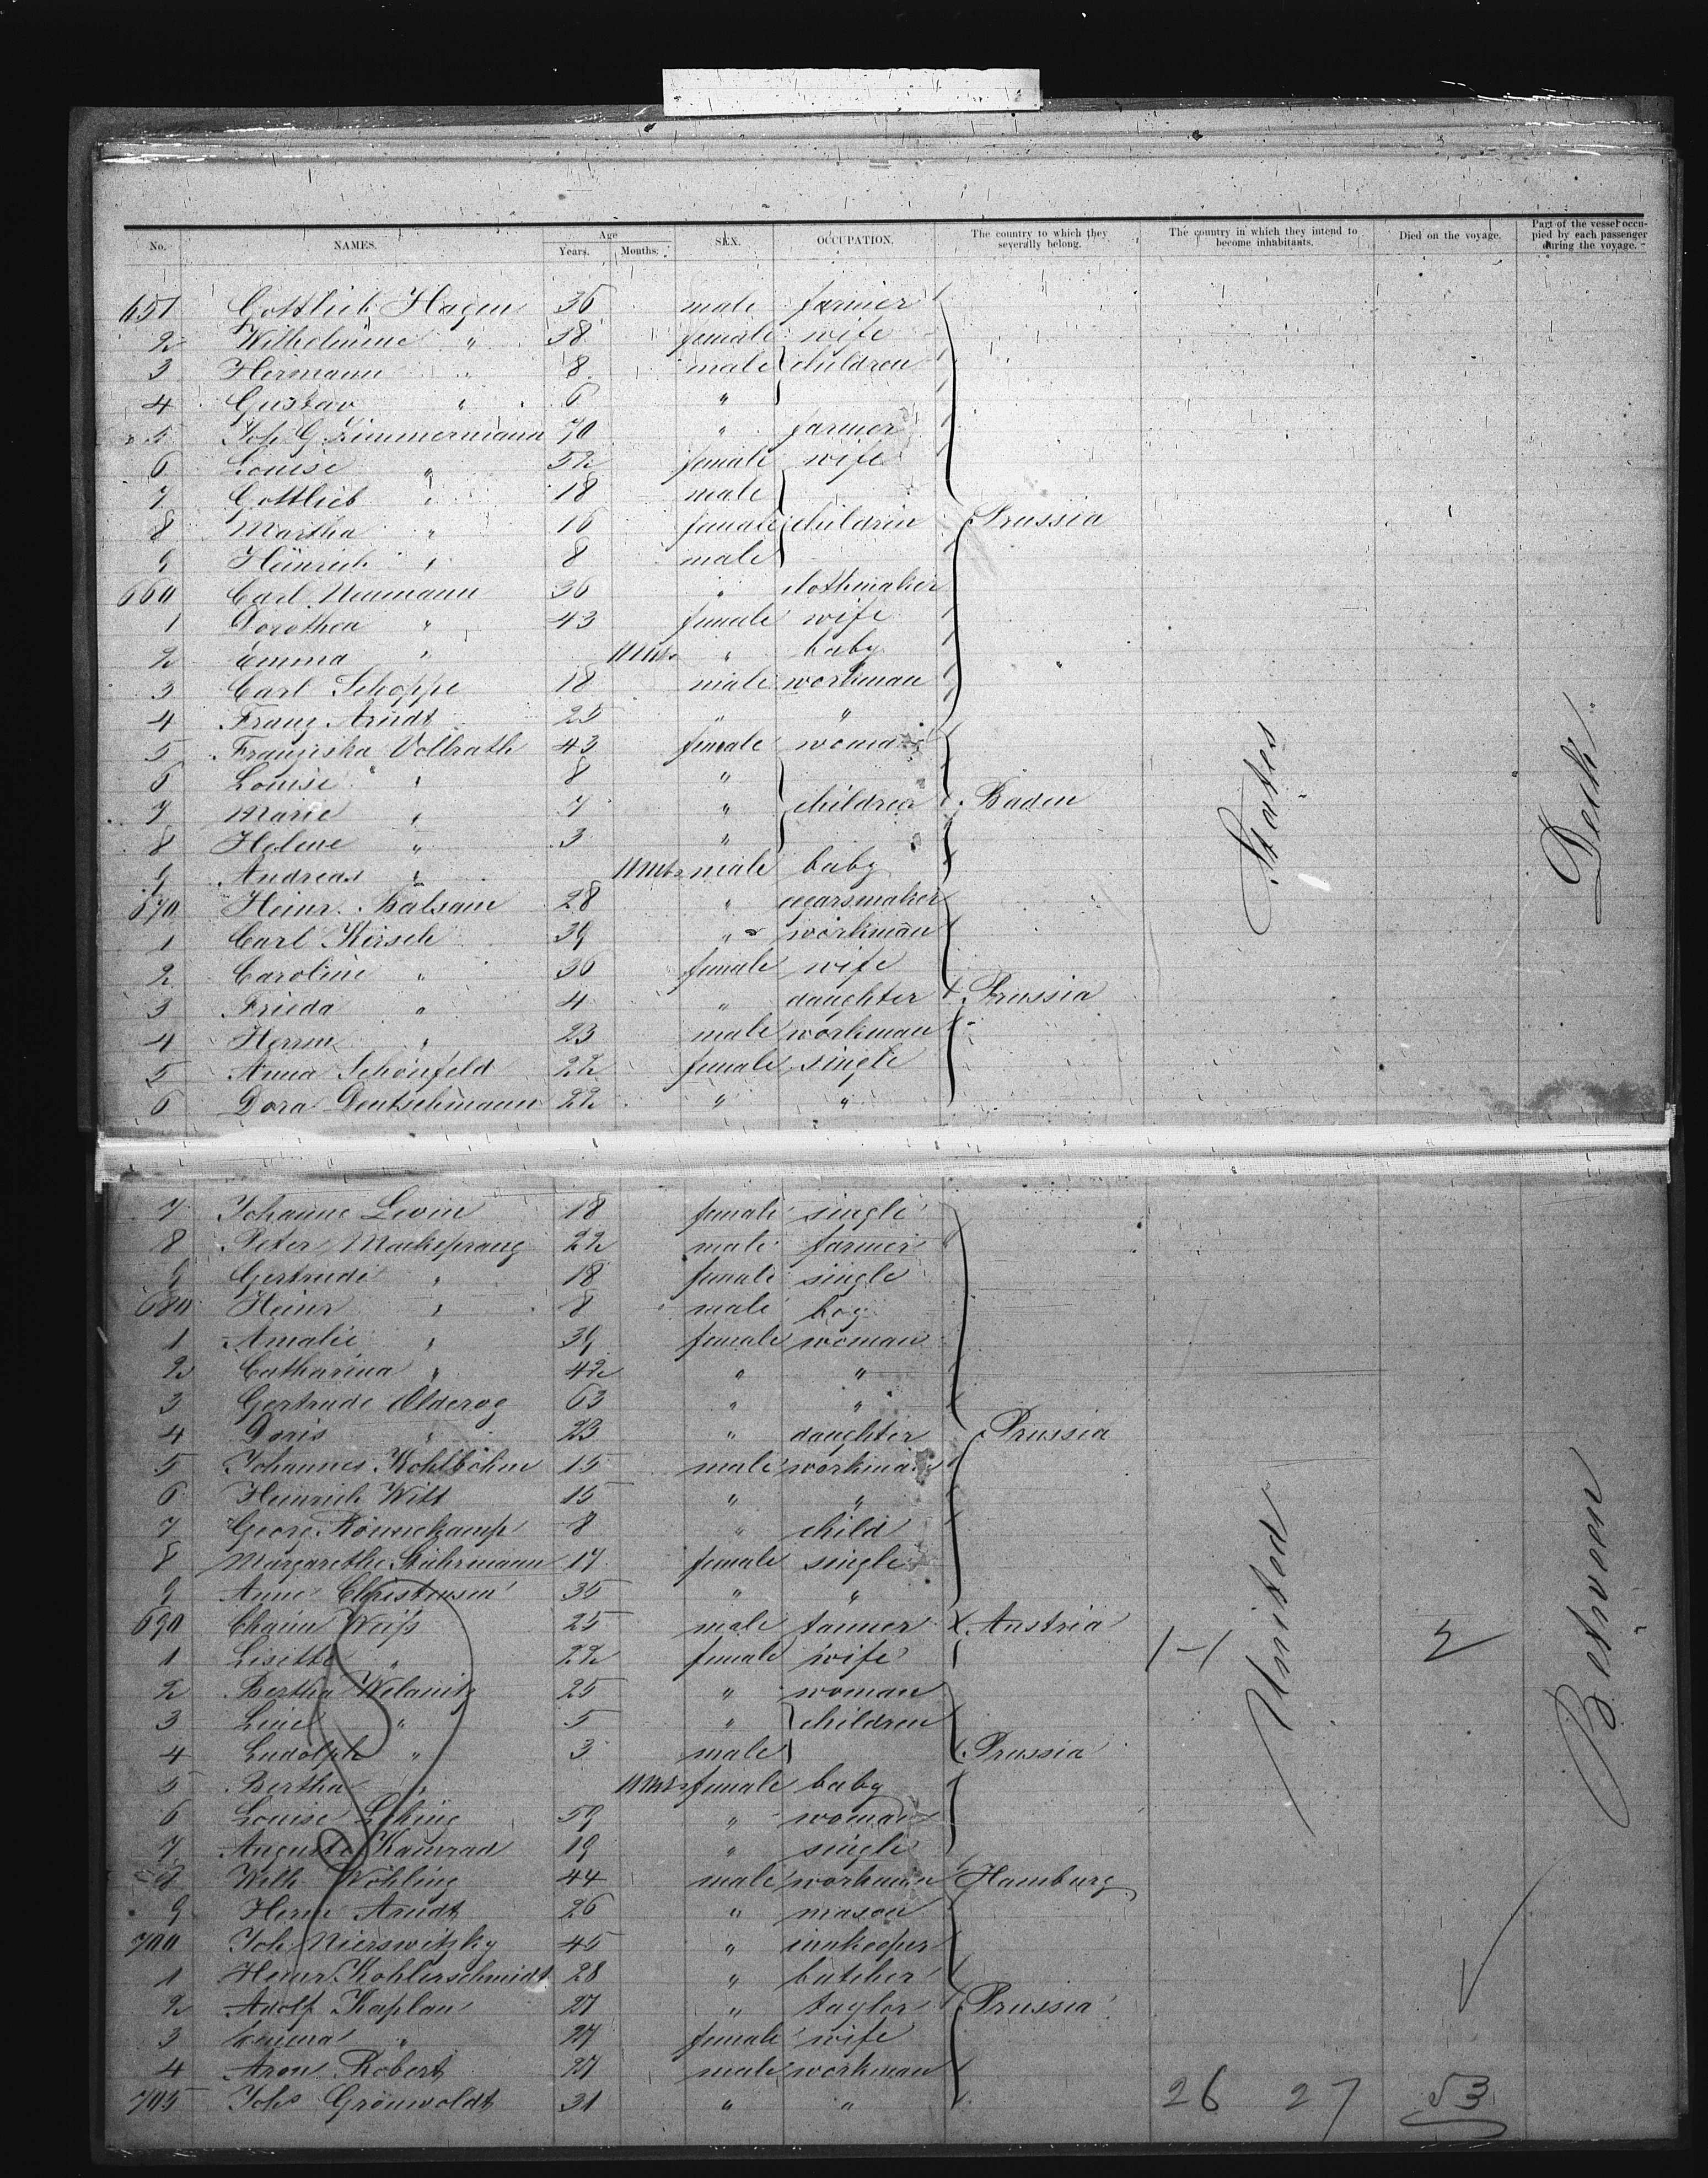 No. NAMES. Age Years. Months. SEX. OCCUPATION. The country to which they severally belong. The country in which they intend to become inhabitants. Died on the voyage. Part of the vessel occupied by each passenger during the voyage.
651 Gottlieb Hagen 36 male farmer
2 Wilhelmine " 38 female wife
3 Hermann " 8 male children
4 Gustav " 6 "
5 Joh. G. Zimmermann 70 " farmer
6 Louise " 52 female wife
7 Gottlieb " 18 male
8 Martha " 16 female children Prussia
9 Heinrich " 8 male
660 Carl Neumann 36 " clothmaker
1 Dorothea " 43 female wife
2 Emma " 11 Mts " baby
3 Carl Schoppe 18 male workman
4 Franz Arndt 25 " "
5 Franziska Vollrath 43 female woman
6 Louise " 8 "
7 Marie " 7 " children Baden
8 Helene " 3 "
9 Andreas " 11 mts male baby
670 Heinr. Balsam 28 " cigarsmaker
1 Carl Kirsch 39 " workman
2 Caroline " 36 female wife
3 Frieda " 4 " daughter Prussia
4 Herm " 23 male workman
5 Anna Schönfeld 22 female single
6 Dora Deutschmann 22 " "
7 Johanne Levin 18 female single
8 Peter Mackeprang 22 male farmer
9 Gertrude " 18 female single
680 Heinr " 8 male boy
1 Amalie " 39 female woman
2 Catharina " 42 " "
3 Gertrude Olderog 63 " "
4 Doris " 23 " daughter Prussia
5 Johannes Kohlböhm 15 male workman
6 Heinrich Witt 15 " "
7 Georg Rönnekamp 8 " child
8 Margarethe Stührmann 17 female single
9 Anne Christensen 35 " "
690 Chaim Weiß 25 male tanner Austria
1 Lisette " 22 female wife
2 Bertha Welanitz 25 " woman
3 Line " 5 " children
4 Ludolph " 3 male Prussia
5 Bertha " 11 Mts female baby
6 Louise 59 " woman
7 Auguste Kamrad 19 " single
8 Wilh Wöhling 44 male workman Hamburg
9 Herm Arndt 26 " mason
700 Joh. Nierswitzky 45 " innkeeper
1 Heinr. Kohlerschmidt 28 " butcher
2 Adolf Kaplan 27 " taylor Prussia
3 Emma " 27 female wife
4 Aron Robert 27 male workman
705 Johs Grönwoldt 31 " "
United States
Between Deck
26 27 53